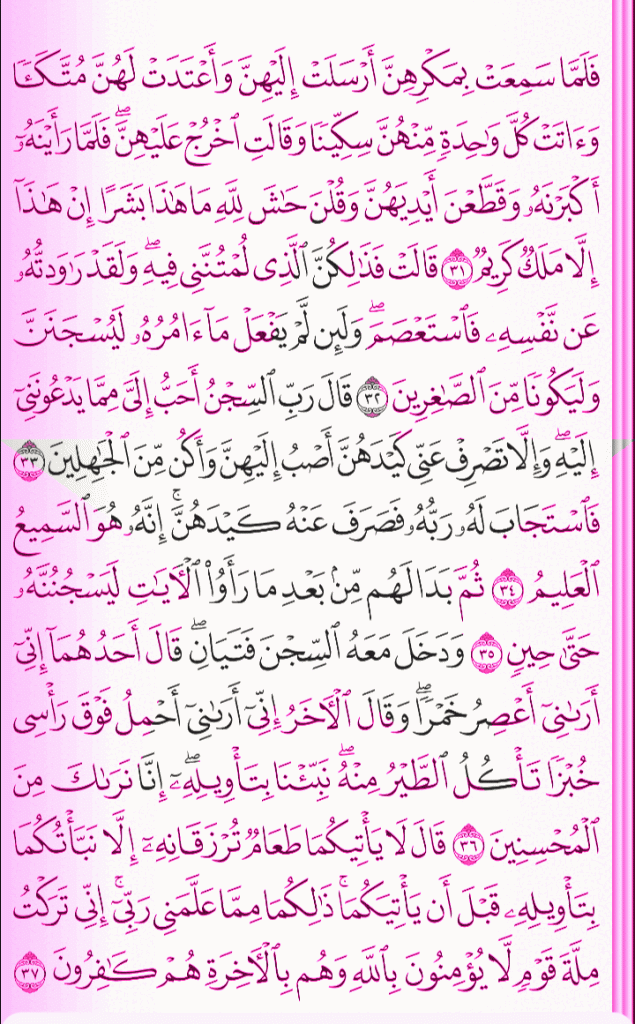 فَلَمَّا سَمِعَتْ بِمَكْرِهِنَّ أَرْسَلَتْ إِلَيْهِنَّ وَأَعْتَدَتْ لَهُنَّ مُتَّكَـًٔا
وَءَاتَتْ كُلَّ وَٰحِدَةٍ مِّنْهُنَّ سِكِّينًا وَقَالَتِ ٱخْرُجْ عَلَيْهِنَّ ۖ فَلَمَّا رَأَيْنَهُۥٓ
أَكْبَرْنَهُۥ وَقَطَّعْنَ أَيْدِيَهُنَّ وَقُلْنَ حَٰشَ لِلَّهِ مَا هَٰذَا بَشَرًا إِنْ هَٰذَآ
إِلَّا مَلَكٌ كَرِيمٌ ٣١ قَالَتْ فَذَٰلِكُنَّ ٱلَّذِى لُمْتُنَّنِى فِيهِ ۖ وَلَقَدْ رَٰوَدتُّهُۥ
عَن نَّفْسِهِۦ فَٱسْتَعْصَمَ ۖ وَلَئِن لَّمْ يَفْعَلْ مَآ ءَامُرُهُۥ لَيُسْجَنَنَّ
وَلَيَكُونًا مِّنَ ٱلصَّٰغِرِينَ ٣٢ قَالَ رَبِّ ٱلسِّجْنُ أَحَبُّ إِلَىَّ مِمَّا يَدْعُونَنِىٓ
إِلَيْهِ ۖ وَإِلَّا تَصْرِفْ عَنِّى كَيْدَهُنَّ أَصْبُ إِلَيْهِنَّ وَأَكُن مِّنَ ٱلْجَٰهِلِينَ ٣٣
فَٱسْتَجَابَ لَهُۥ رَبُّهُۥ فَصَرَفَ عَنْهُ كَيْدَهُنَّ ۚ إِنَّهُۥ هُوَ ٱلسَّمِيعُ
ٱلْعَلِيمُ ٣٤ ثُمَّ بَدَا لَهُم مِّنۢ بَعْدِ مَا رَأَوُا۟ ٱلْءَايَٰتِ لَيَسْجُنُنَّهُۥ
حَتَّىٰ حِينٍ ٣٥ وَدَخَلَ مَعَهُ ٱلسِّجْنَ فَتَيَانِ ۖ قَالَ أَحَدُهُمَآ إِنِّىٓ
أَرَىٰنِىٓ أَعْصِرُ خَمْرًا ۖ وَقَالَ ٱلْءَاخَرُ إِنِّىٓ أَرَىٰنِىٓ أَحْمِلُ فَوْقَ رَأْسِى
خُبْزًا تَأْكُلُ ٱلطَّيْرُ مِنْهُ ۖ نَبِّئْنَا بِتَأْوِيلِهِۦٓ ۖ إِنَّا نَرَىٰكَ مِنَ
ٱلْمُحْسِنِينَ ٣٦ قَالَ لَا يَأْتِيكُمَا طَعَامٌ تُرْزَقَانِهِۦٓ إِلَّا نَبَّأْتُكُمَا
بِتَأْوِيلِهِۦ قَبْلَ أَن يَأْتِيَكُمَا ۚ ذَٰلِكُمَا مِمَّا عَلَّمَنِى رَبِّىٓ ۚ إِنِّى تَرَكْتُ
مِلَّةَ قَوْمٍ لَّا يُؤْمِنُونَ بِٱللَّهِ وَهُم بِٱلْءَاخِرَةِ هُمْ كَٰفِرُونَ ٣٧